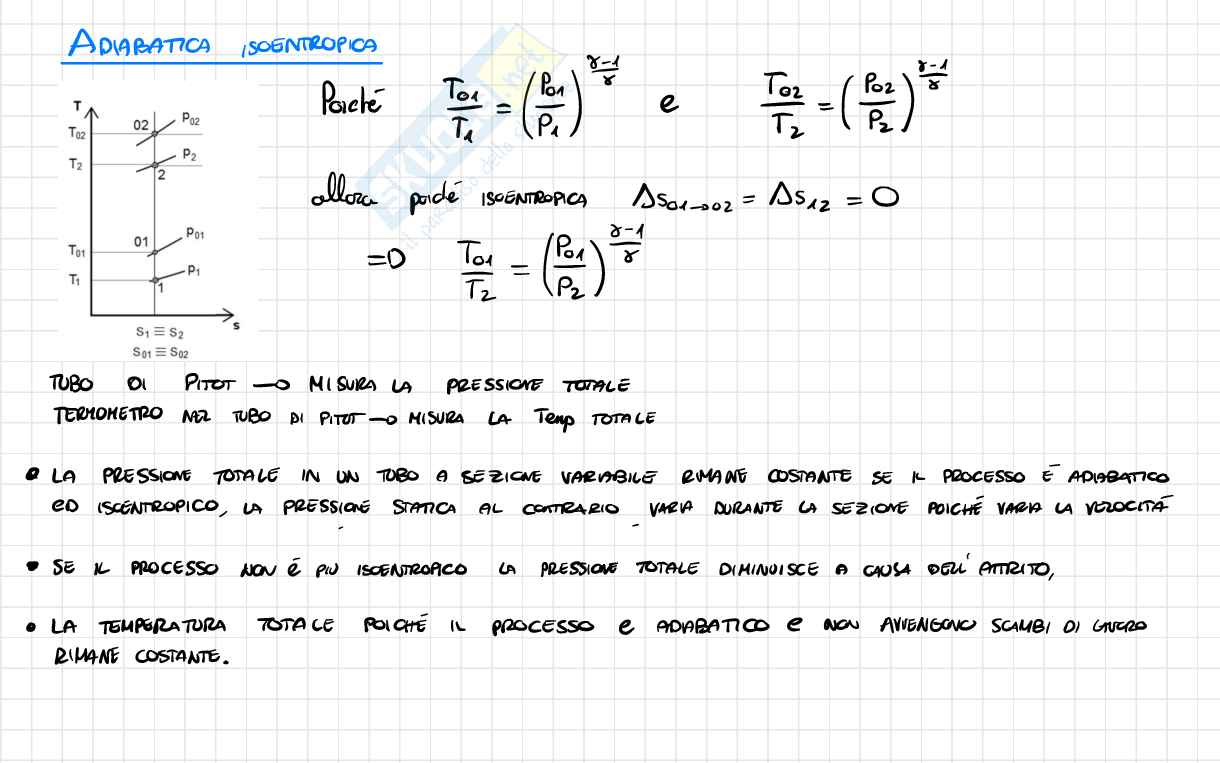 ADIABATICA ISOENTROPICA
Poiché T01/T1 = (P01/P1)^((γ-1)/γ) e T02/T2 = (P02/P2)^((γ-1)/γ)
T
T02
02
P02
T2
P2
2
allora poiché ISOENTROPICA Δs01→02 = Δs12 = 0
T01
01
P01
=D T01/T2 = (P01/P2)^((γ-1)/γ)
T1
P1
1
s
S1 ≡ S2
S01 ≡ S02
SKUOLA.net
il paradiso dello
TUBO DI PITOT → MISURA LA PRESSIONE TOTALE
TERMOMETRO NEL TUBO DI PITOT → MISURA LA Temp TOTALE
• LA PRESSIONE TOTALE IN UN TUBO A SEZIONE VARIABILE RIMANE COSTANTE SE IL PROCESSO É ADIABATICO
ED ISOENTROPICO, LA PRESSIONE STATICA AL CONTRARIO VARIA DURANTE LA SEZIONE POICHÉ VARIA LA VELOCITÀ
• SE IL PROCESSO NON É PIU ISOENTROPICO LA PRESSIONE TOTALE DIMINUISCE A CAUSA DELL'ATTRITO,
• LA TEMPERATURA TOTALE POICHÉ IL PROCESSO e ADIABATICO e NON AVVENGONO SCAMBI DI
RIMANE COSTANTE.